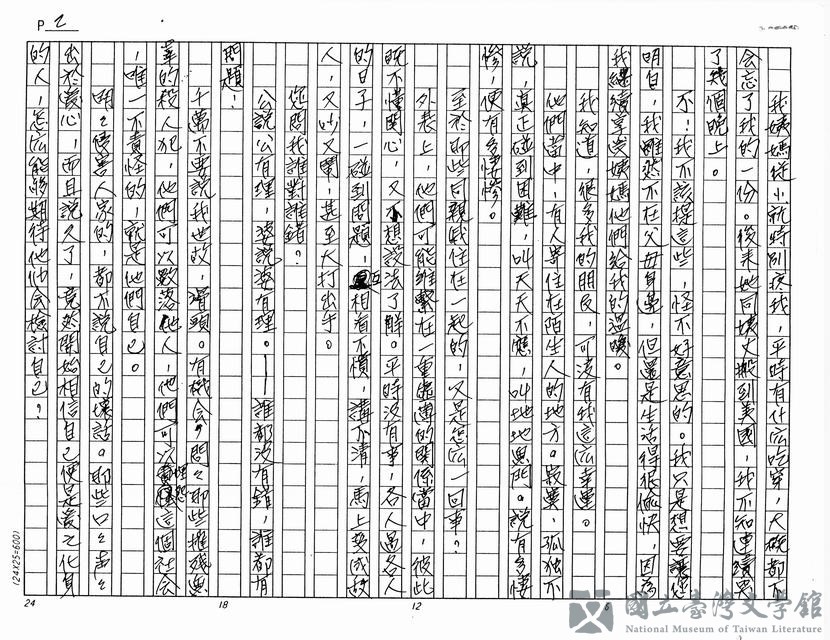 P 2
我姨媽從小就特別疼我，平時有什応吃穿，大碗都不
会忘了我的一份。後来她同姨丈搬到美國，我不知連續哭
了幾個晚上。
不！我不該提這些，怪不好意思的。我只是想要讓您
明白，我雖然不在父母身邊，但還是生活得很愉快，因為
我継續享受姨媽他們給我的温暖。
我知道，很多我的朋友，可沒有我這応幸運。
他們當中，有人單住在陌生人的地方。寂寞，孤独不
說，真正碰到困難，叫天天不應，叫地地無門。說有多悽
慘，便有多悽慘。
至於那些同親戚住在一起的，又是怎応一回事？
外表上，他們可能維繫在一重虛薄的関係當中，彼此
既不懂関心，又不想設法了解。平時沒有事，各人過各人
的日子，一碰到問題，互相看不慣，講不清，馬上變成敌
人，又吵又鬧，甚至大打出手。
您問我誰對誰錯？
公說公有理，婆說婆有理。——誰都沒有錯，誰都有
問題！
千萬不要說我世故，滑頭。有機会，問々那些摧残無
辜的殺人犯，他們可以数落他人，他們可以埋怨這個社会
，唯一不責怪的，就是他們自己。
明々侵害人家的，都不說自己的壞話。那些口々声々
出於愛心，而且說久了，竟然開始相信自己便是愛之化身
的人，怎応能夠期待他們会檢討自己？
24
18
12
6
(24X25=600)
國立臺灣文學館
National Museum of Taiwan Literature